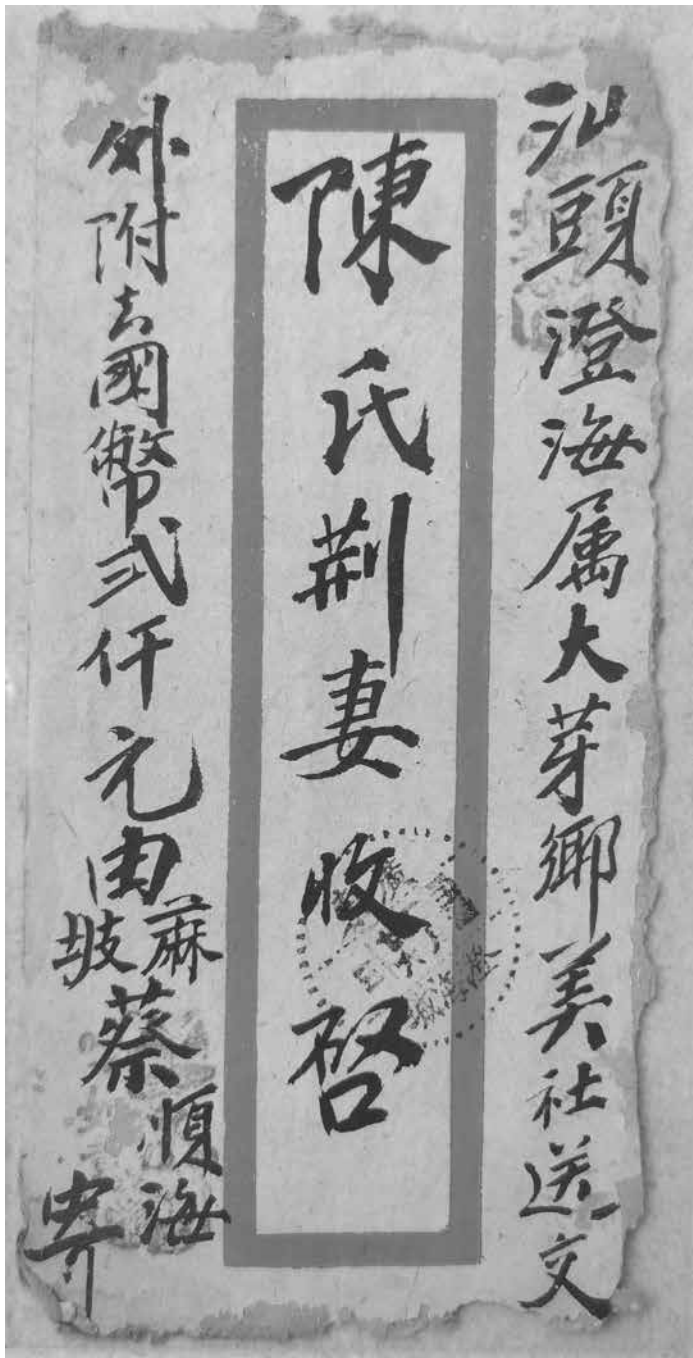 汕頭澄海属大芽鄉美社送文
陳氏荆妻收啓
外附去國幣弍仟元由蔴坡蔡順海寄